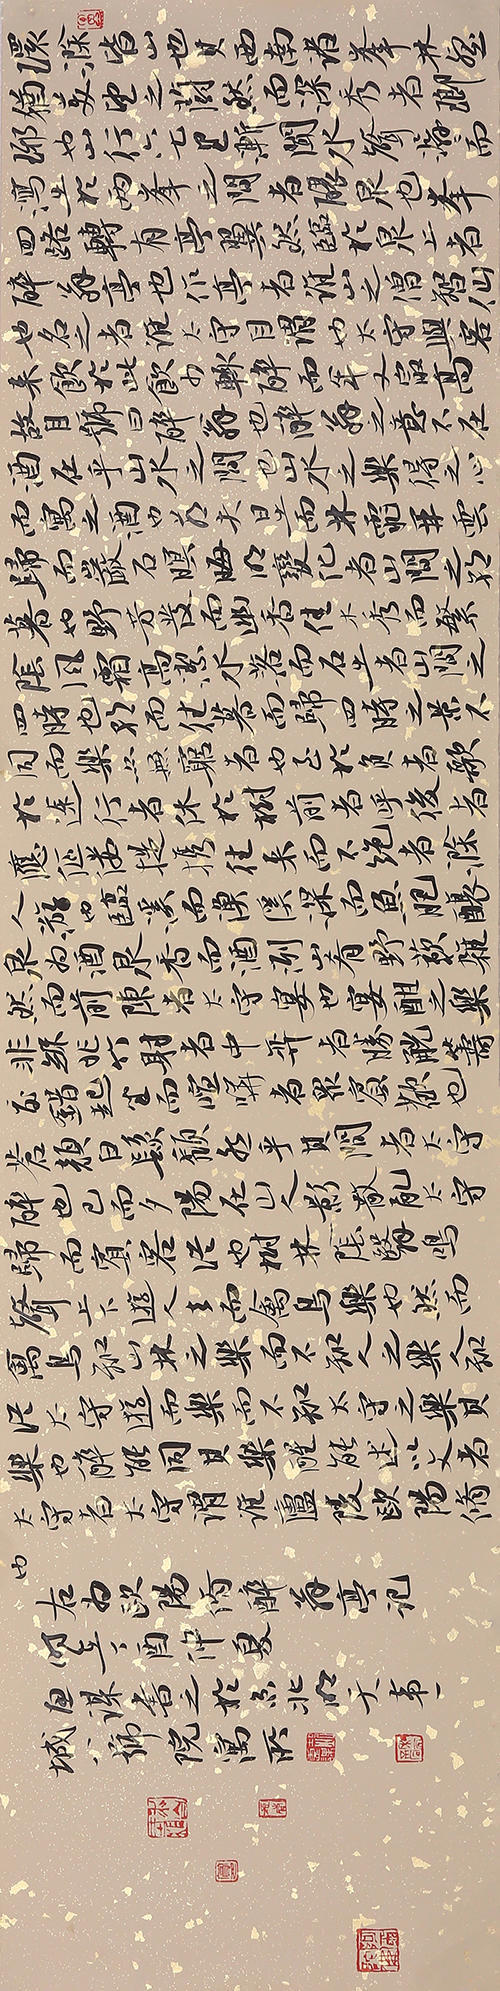 環滁皆山也其西南諸峯林壑
尤美望之蔚然而深秀者瑯
琊也山行六七里漸聞水聲潺而
瀉出於兩峯之間者釀泉也峯
回路轉有亭翼然臨於泉上者
醉翁亭也作亭者誰山之僧智仙
也名之者誰太守自謂也太守與客
來飲於此飲少輒醉而年又最高
故自號曰醉翁也醉翁之意不在
酒在乎山水之間也山水之樂得之心
而寓之酒也若夫日出而林霏開雲
歸而巖石暝晦明變化者山間之朝
暮也野芳發而幽香佳木秀而繁
陰風霜高潔水落而石出者山間之
四時也朝而往暮而歸四時之景不
同而樂亦無窮者也至於負者歌
於途行者休於樹前者呼後者
應傴僂提攜往來而不絕者滁
人游也臨溪而漁溪深而魚肥釀
泉為酒泉香而酒洌山肴野蔌雜
然而前陳者太守宴也宴酣之樂
非絲非竹射者中弈者勝觥籌
交錯起坐而諠譁者眾賓歡也
蒼顏白髮頹然乎其間者太守
醉也已而夕陽在山人影散亂太守
歸而賓客從也樹林陰翳鳴
聲上下遊人去而禽鳥樂也然而
禽鳥知山林之樂而不知人之樂人知
從太守遊而樂而不知太守之樂其
樂也醉能同其樂醒能述以文者
太守者太守謂誰廬陵歐陽脩
也
右為歐陽脩醉翁亭記
酉仲夏
課書之於京北天第一
城號院寓所